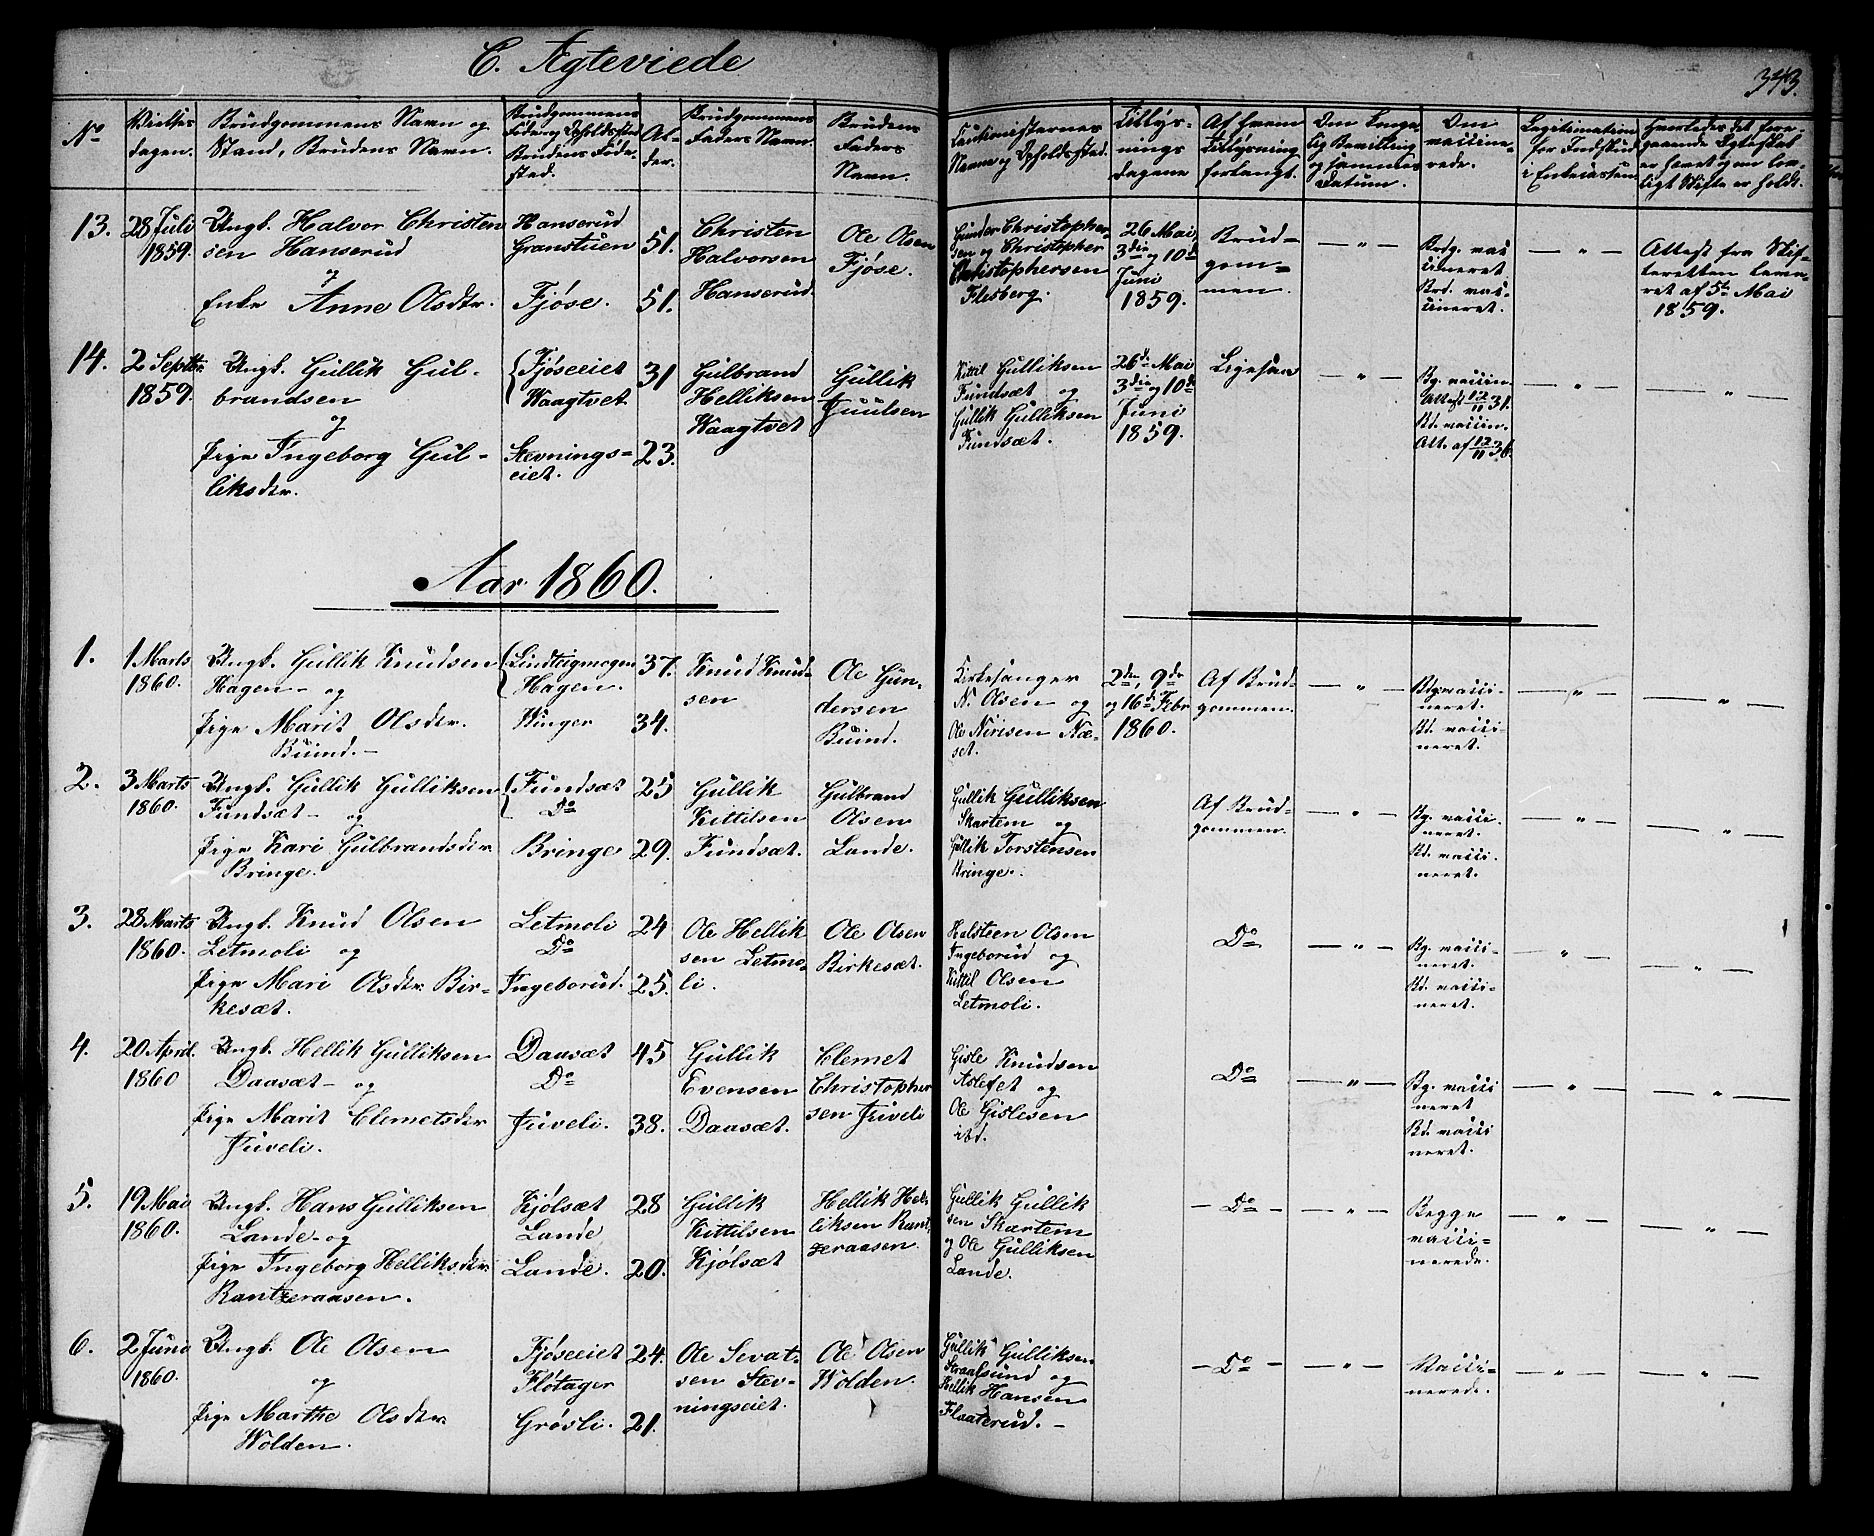 C. Ægteviede
343.
No
Vielses dagen.
Brudgommens Navn og Stand, Brudens Navn.
Brudgommens Føde og Opholdssted Brudens Føde sted.
Al- der.
Brudgommens Faders Navn.
Brudens Faders Navn.
Cautionisternes Navne og Opholdssted.
Tillys- nings dagene
Af hvem Tillysning forlangt.
Den konge- lig Bevilling og sammes Datum.
Om vaccine- rede.
Legitimation for Indskud i Enkecassen
Hvorledes det fore- gaaende Egteskab er hævet og om lov- ligt Skifte er holdt.
13.
28 Juli 1859.
Ungk. Halvor Christen
sen Hanserud
og
Enke Anne Olsdtr.
Hanserud
Granstuen
Fjøse.
51.
51.
Christen
Halvorsen
Hanserud
Ole Olsen
Fjøse.
Gunder Christopher-
sen og Christopher
Christophersen
Flesberg.
26 Mai
3die og 10de
Juni
1859.
Brud-
gom-
men.
— " —
Brdg. vac
cineret.
Brd. vac-
cineret.
— " —
Attest fra Skif-
teretten leve-
ret af 5te Mai
1859.
14.
2 Septbr.
1859.
Ungk. Gullik Gul-
brandsen
og
Pige Ingeborg Gul-
liksdtr.
Fjøseeiet
Waagtvet
Stevnings-
eiet.
31
23.
Gulbrand
Helliksen
Waagtvet
Gullik
Juulsen
Kittil Gulliksen
Fundsæt og
Gullik Gulliksen
Fundsæt.
26de Mai
3die og 10de
Juni
1859.
Ligesaa
— " —
Bg. vaccin.
Attest 12/11 31.
Bd. vaccin.
Att. af 12/11 36.
— " —
— " —
Aar 1860.
1.
1 Marts
1860.
Ungk. Gullik Knudsen
Hagen - og
Pige Marit Olsdtr.
Buind. -
Lindteigmogen
Hagen.
Winger
37.
34.
Knud Knud-
sen
Ole Gun-
dersen
Buind.
Kirkesanger
N. Olsen og
Ole Nirisen Næ-
set.
2den, 9de
og 16de Febr
1860.
Af Brud-
gommen.
— " —
Bg. vacci-
neret.
Bd. vacci-
neret.
— " —
— " —
2.
3 Marts
1860.
Ungk. Gullik Gulliksen
Fundsæt - og
Pige Kari Gulbrandsdtr
Bringe.
Fundsæt
Do
Bringe
25
29.
Gullik
Kittilsen
Fundsæt.
Gulbrand
Olsen
Lande.
Gullik Gulliksen
Skartem og
Gullik Torstensen
Bringe.
Af Brud-
gommen.
— " —
Bg. vacci-
neret.
Bd. vacci-
neret.
— " —
— " —
3.
28 Marts
1860.
Ungk. Knud Olsen
Letmoli og
Pige Mari Olsdtr. Bir-
kesæt.
Letmoli
Do
Ingeborud.
24
25.
Ole Hellik
sen Letmo-
li.
Ole Olsen
Birkesæt.
Halsteen Olsen
Ingeborud og
Kittil Olsen
Letmoli.
Do
— " —
Bg. vacci-
neret.
Bd. vacci-
neret.
— " —
— " —
4.
20 April.
1860
Ungk. Hellik Gulliksen
Daasæt - og
Pige Marit Clemetsdtr
Juveli.
Daasæt
Do
Juveli.
45
38.
Gullik
Evensen
Daasæt.
Clemet
Christopher
sen Juveli
Gisle Knudsen
Aslefet og
Ole Gislesen
ibd.
Do
— " —
Bg. vacci
neret
Bd. vacci
neret.
— " —
— " —
5.
19 Mai
1860.
Ungk. Hans Gulliksen
Lande - og
Pige Ingeborg Helliksdtr.
Rantzeraasen.
Kjølsæt
Lande
Lande.
28
20.
Gullik
Kittilsen
Kjølsæt
Hellik Hel-
liksen Rant-
zeraasen.
Gullik Gullik
sen Skartem
og Ole Gulliksen
Lande.
- Do -
— " —
Begge
vacci-
nerede.
— " —
— " —
6.
2 Juni
1860.
Ungk. Ole Olsen
og
Pige Marthe Olsdtr.
Wolden.
Fjøseeiet
Flotager
Grøsli.
24.
21.
Ole Sevat-
sen Stev-
ningseiet.
Ole Olsen
Wolden.
Gullik Gulliksen
Straalsund og
Hellik Hansen
Flaaterud. -
- Do -
— " —
Vacci-
nerede.
— " —
— " —